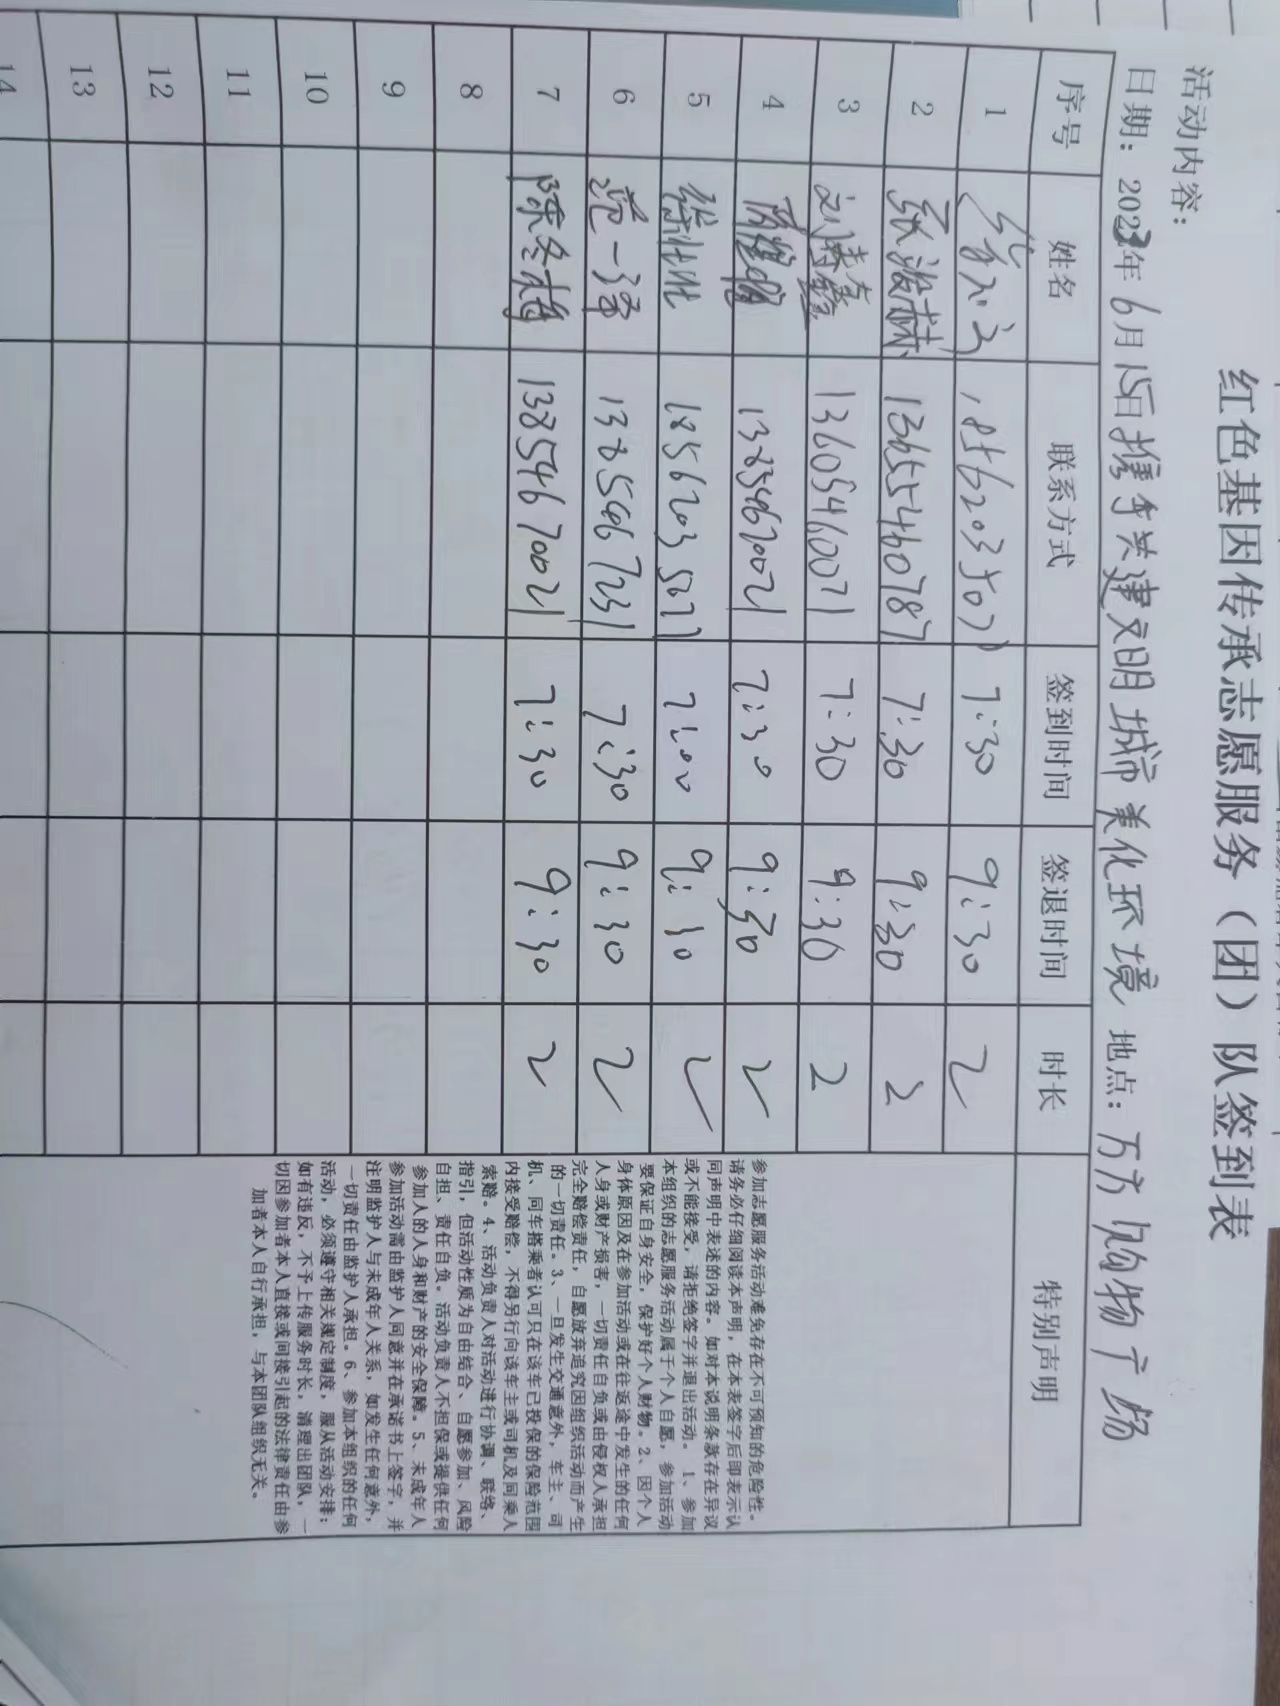 红色基因传承志愿服务（团）队签到表
活动内容：
日期：2023年6月15日携手共建文明城市美化环境 地点：万方购物广场
序号 姓名 联系方式 签到时间 签退时间 时长 特别声明
1 7:30 9:30 2
2 13655460787 7:30 9:30 2
3 13605460071 7:30 9:30 2
4 7:30 9:30 2
5 18562035071 7:00 9:30 2
6 范一泽 7:30 9:30 2
7 陈冬梅 13854670021 7:30 9:30 2
8
9
10
11
12
13
14
参加志愿服务活动难免存在不可预知的危险性。
请务必仔细阅读本声明，在本表签字后即表示认
同声明中表述的内容。如对本说明条款存在异议
或不能接受，请拒绝签字并退出活动。1、参加
本组织的志愿服务活动属于个人自愿，参加活动
要保证自身安全，保护好个人财物。2、因个人
身体原因及在参加活动或在往返途中发生的任何
人身或财产损害，一切责任自负或由侵权人承担
完全赔偿责任，自愿放弃追究因组织活动而产生
的一切责任。3、一旦发生交通意外，车主、司
机、同车搭乘者认可只在该车已投保的保险范围
内接受赔偿，不得另行向该车主或司机及同乘人
索赔。4、活动负责人对活动进行协调、联络、
指引，但活动性质为自由结合、自愿参加、风险
自担、责任自负。活动负责人不担保或提供任何
参加人的人身和财产的安全保障。5、未成年人
参加活动需由监护人同意并在承诺书上签字，并
注明监护人与未成年人关系，如发生任何意外，
一切责任由监护人承担。6、参加本组织的任何
活动，必须遵守相关规定制度，服从活动安排；
如有违反，不予上传服务时长，清理出团队，一
切因参加者本人直接或间接引起的法律责任由参
加者本人自行承担，与本团队组织无关。